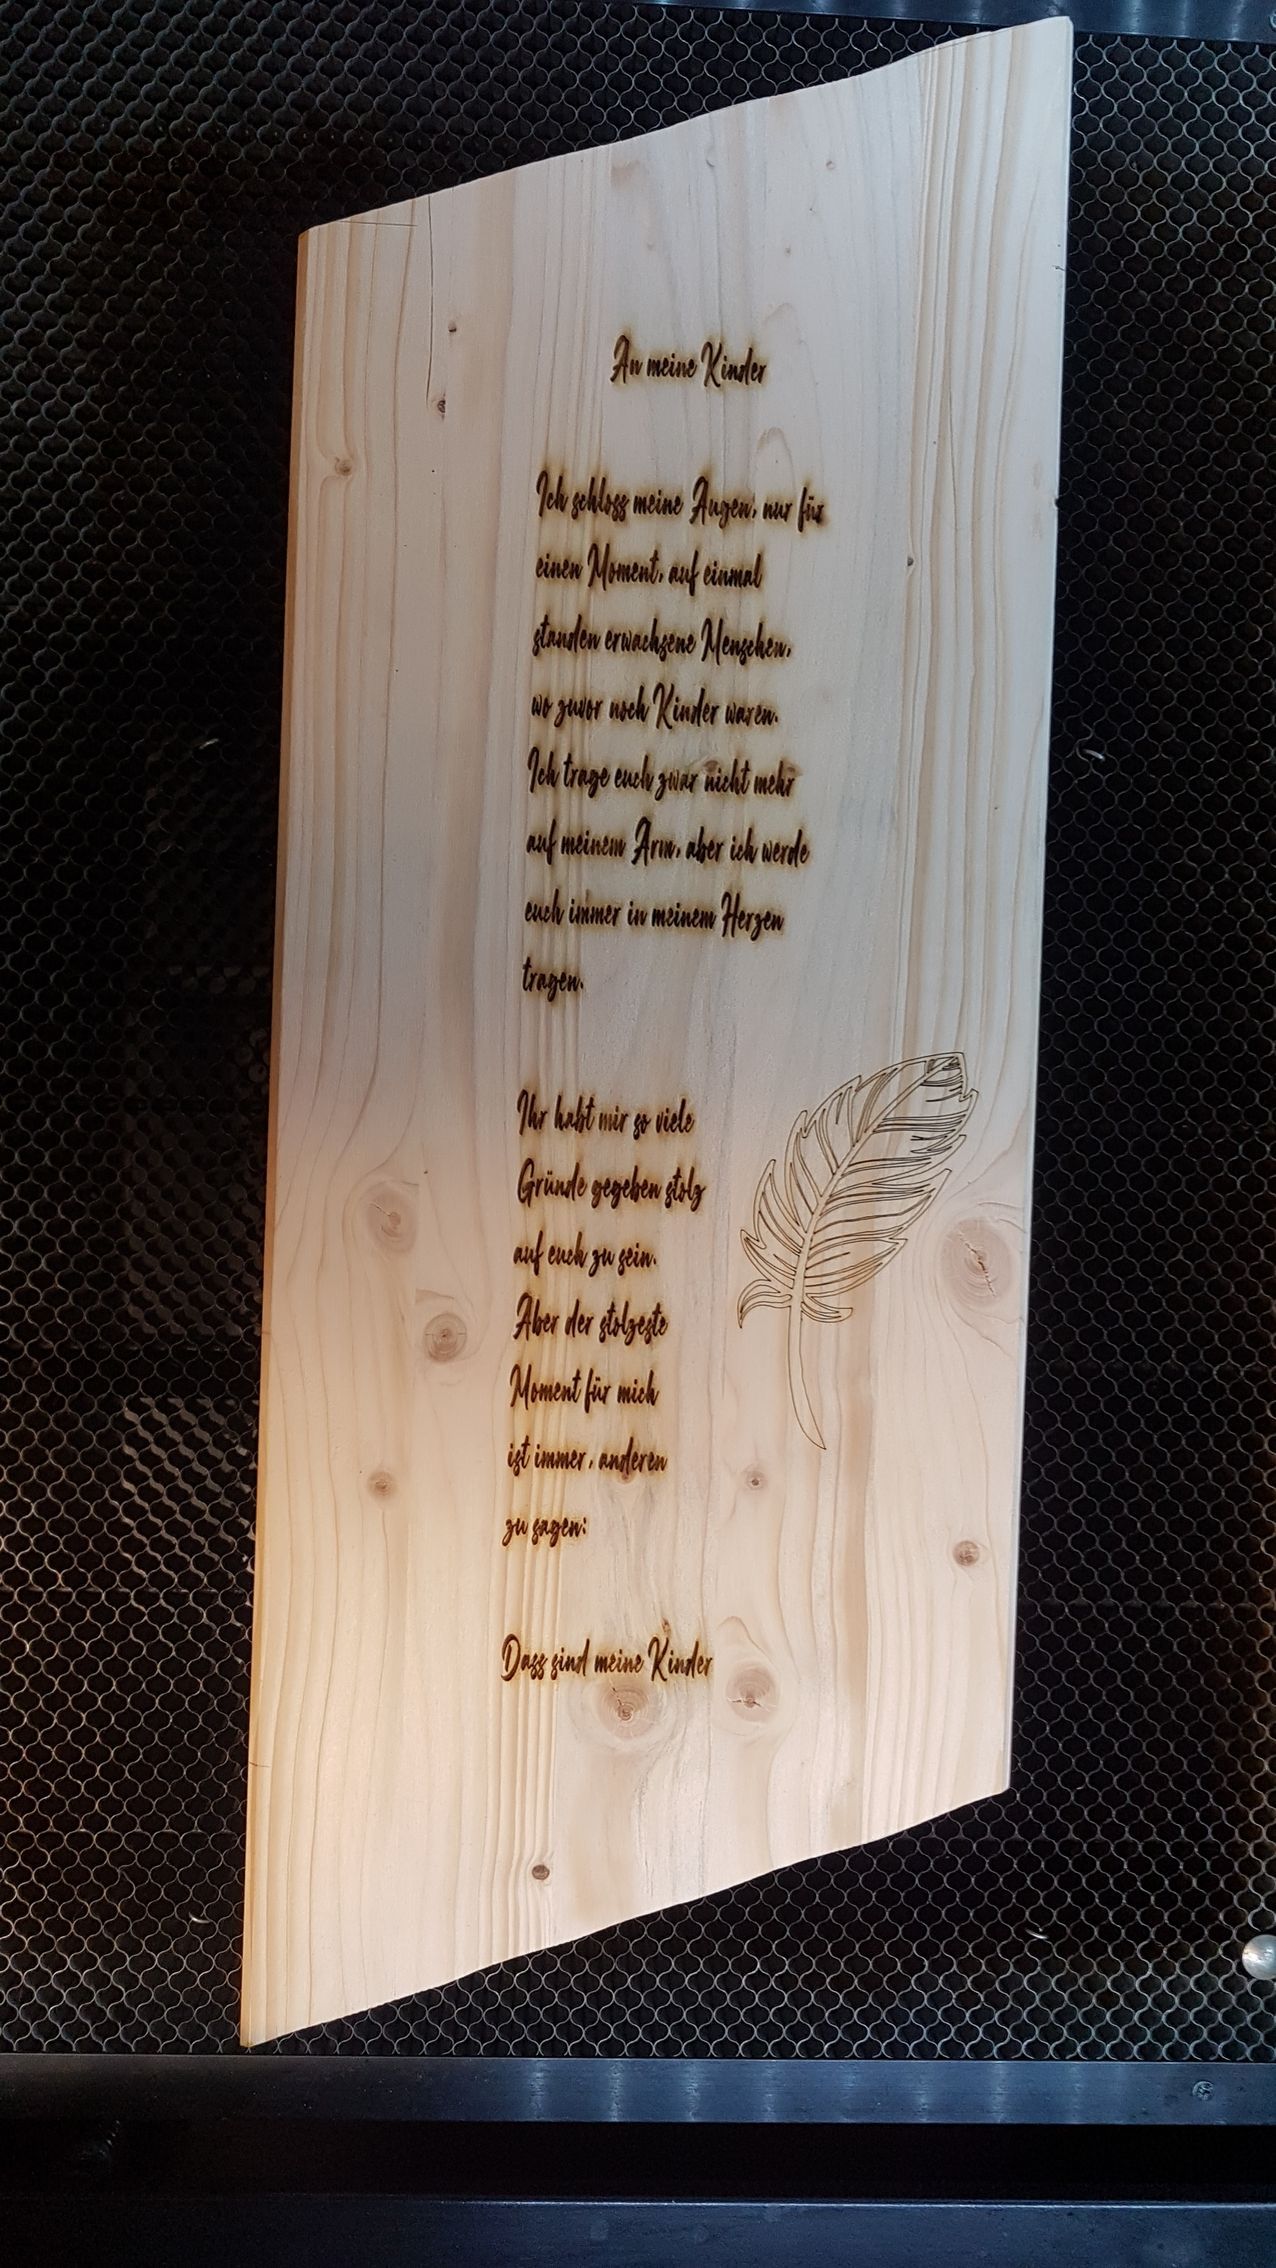 An meine Kinder
Ich schloss meine Augen, nur für
einen Moment, auf einmal
standen erwachsene Menschen,
wo zuvor noch Kinder waren.
Ich trage euch zwar nicht mehr
auf meinem Arm, aber ich werde
euch immer in meinem Herzen
tragen.
Ihr habt mir so viele
Gründe gegeben stolz
auf euch zu sein.
Aber der stolzeste
Moment für mich
ist immer, anderen
zu sagen:
Dass sind meine Kinder